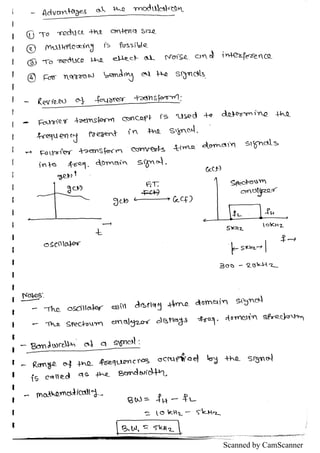 - Advantages of the modulation
① To reduce the antena size
② multiplexing is possible
③ To reduce the effect of noise and interference
④ For narrow banding of the signals
- Review of fourier transform:-
- Fourier transform concept is used to determine the
frequency present in the signal.
- Fourier transform converts time domain signals
into freq. domain signal.
g(t)
G(f)
g(t)
F.T.
g(t) G(f)
Spectrum
analyzer
fL fH
t
5KHZ 10KHZ
oscillator
f
5KHZ
300 - 20KHZ
Notes:
- The oscillator will display time domain signal
- The spectrum analyzor displays freq. domain spectrum
- Bandwidth of a signal:
- Range of the frequencies occupied by the signal
is called as the Bandwidth.
- mathematically
BW = fH - fL
= 10 KHZ - 5KHZ
B.W. = 5KHZ
Scanned by CamScanner